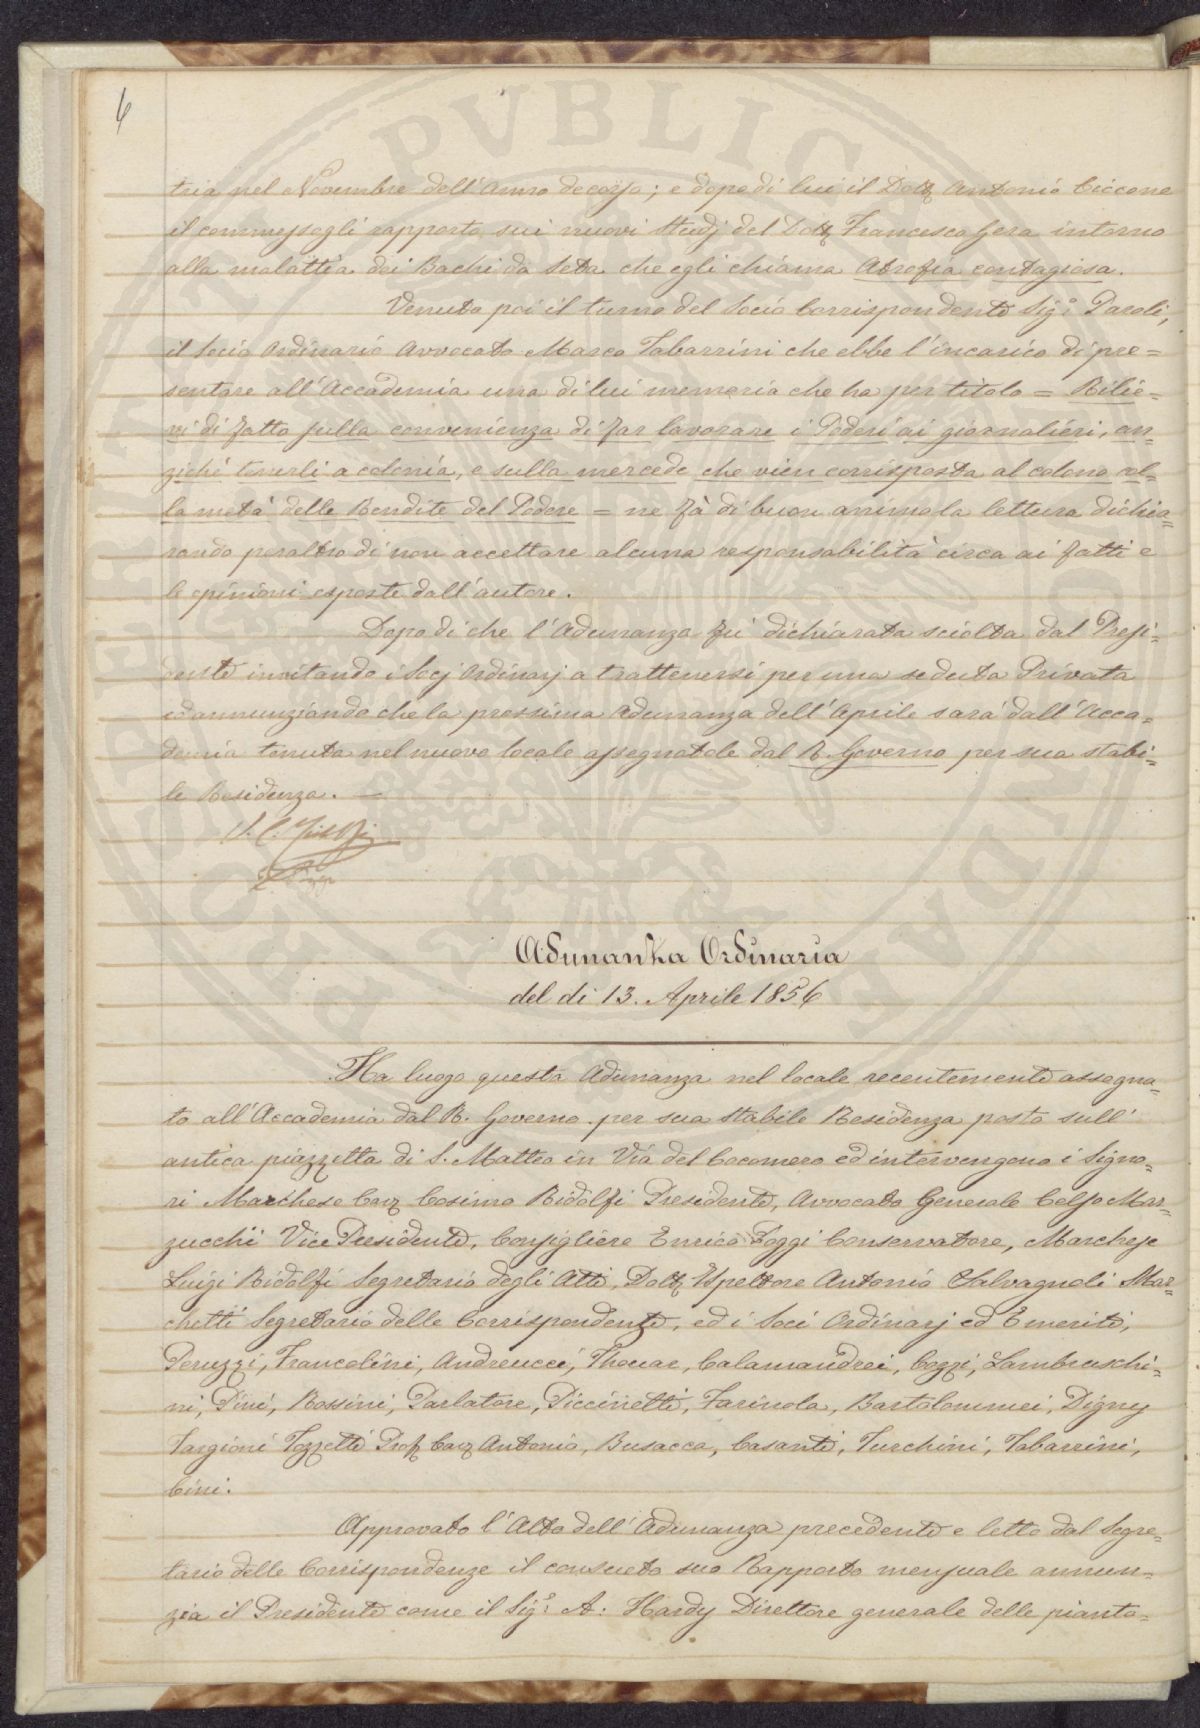 6
tria nel Novembre dell'anno decorso; e dopo di lui il Dott. Antonio Ciccone
il commessogli rapporto sui nuovi studj del Dott. Francesco Gera intorno
alla malattia dei Bachi da Seta che egli chiama Atrofia contagiosa.
Venuto poi il turno del Socio Corrispondente Sig.r Paroli,
il Socio Ordinario Avvocato Marco Tabarrini che ebbe l'incarico di pre=
sentare all'Accademia una di lui memoria che ha per titolo = Rilie=
vi di fatto sulla convenienza di far lavorare i Poderi ai giornalieri, an=
ziché tenerli a colonia, e sulla mercede che vien corrisposta al colono col=
la metà delle Rendite del Podere = ne fà di buon animo la lettura dichia=
rando peraltro di non accettare alcuna responsabilità circa ai fatti e
le opinioni esposte dall'autore.
Dopo di che l'Adunanza fù dichiarata sciolta dal Presi=
dente invitando i Socj Ordinarj a trattenersi per una seduta Privata
ed annunziando che la prossima adunanza dell'Aprile sarà dall'Acca=
demia tenuta nel nuovo locale assegnatole dal R. Governo per sua stabi=
le Residenza. —
Adunanza Ordinaria
del di 13. Aprile 1856
Ha luogo questa Adunanza nel locale recentemente assegna=
to all'Accademia dal R. Governo per sua stabile Residenza posto sull'
antica piazzetta di S. Matteo in Via del Cocomero ed intervengono i Signo=
ri Marchese Cav. Cosimo Ridolfi Presidente, Avvocato Generale Celso Mar=
zucchi Vice Presidente, Consigliere Enrico Poggi Conservatore, Marchese
Luigi Ridolfi Segretario degli Atti, Dott. Ispettore Antonio Salvagnoli Mar=
chetti Segretario delle Corrispondenze, ed i Soci Ordinarj ed Emeriti,
Peruzzi, Francolini, Andreucci, Thouar, Calamandrei, Cozzi, Lambruschi=
ni, Pini, Rossini, Parlatore, Piccinetti, Farinola, Bartolommei, Digny
Targioni Tozzetti Prof. Cav. Antonio, Busacca, Casanti, Turchini, Tabarrini,
Cini.
Approvato l'Atto dell'Adunanza precedente e letto dal Segre=
tario delle Corrispondenze il consueto suo Rapporto mensuale annun=
zia il Presidente come il Sig.r A. Hardy Direttore generale delle pianta=